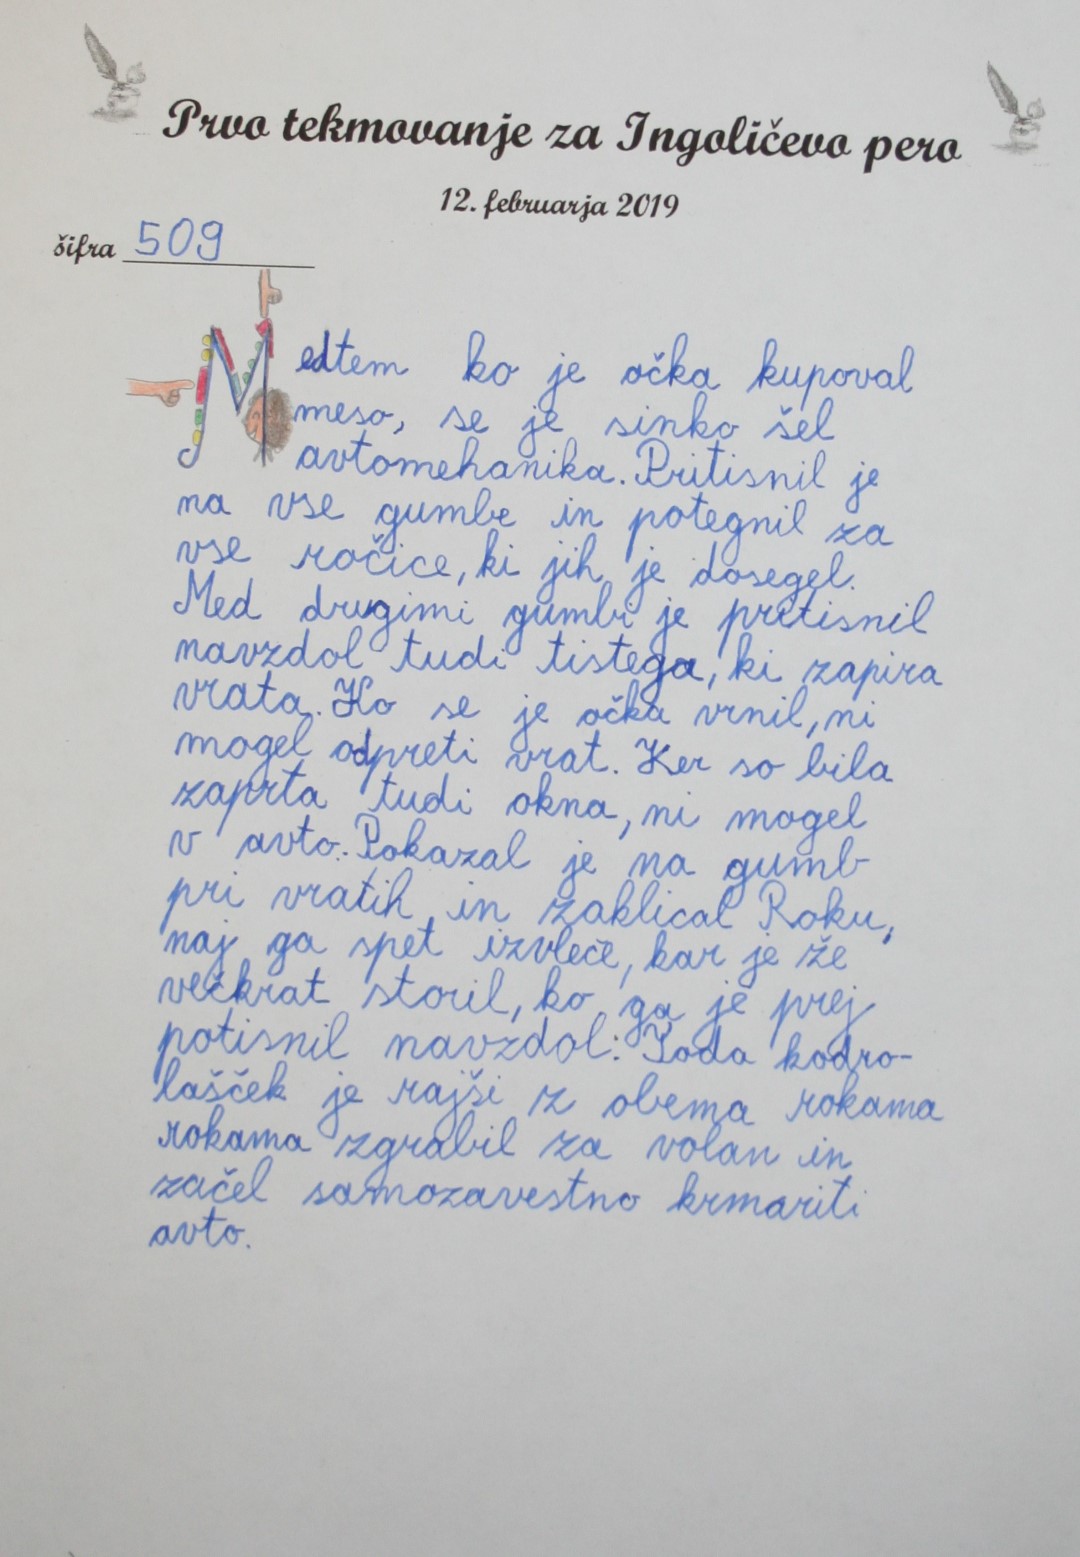 Prvo tekmovanje za Ingoličevo pero
12. februarja 2019
šifra 509
Medtem ko je očka kupoval
meso, se je sinko šel
avtomehanika. Pritisnil je
na vse gumbe in potegnil za
vse ročice, ki jih je dosegel.
Med drugimi gumbi je pritisnil
navzdol tudi tistega, ki zapira
vrata. Ko se je očka vrnil, ni
mogel odpreti vrat. Ker so bila
zaprta tudi okna, ni mogel
v avto. Pokazal je na gumb
pri vratih in zaklical Roku,
naj ga spet izvleče, kar je že
večkrat storil, ko ga je prej
potisnil navzdol. Toda kodro-
lašček je rajši z obema rokama
rokama zgrabil za volan in
začel samozavestno krmariti
avto.